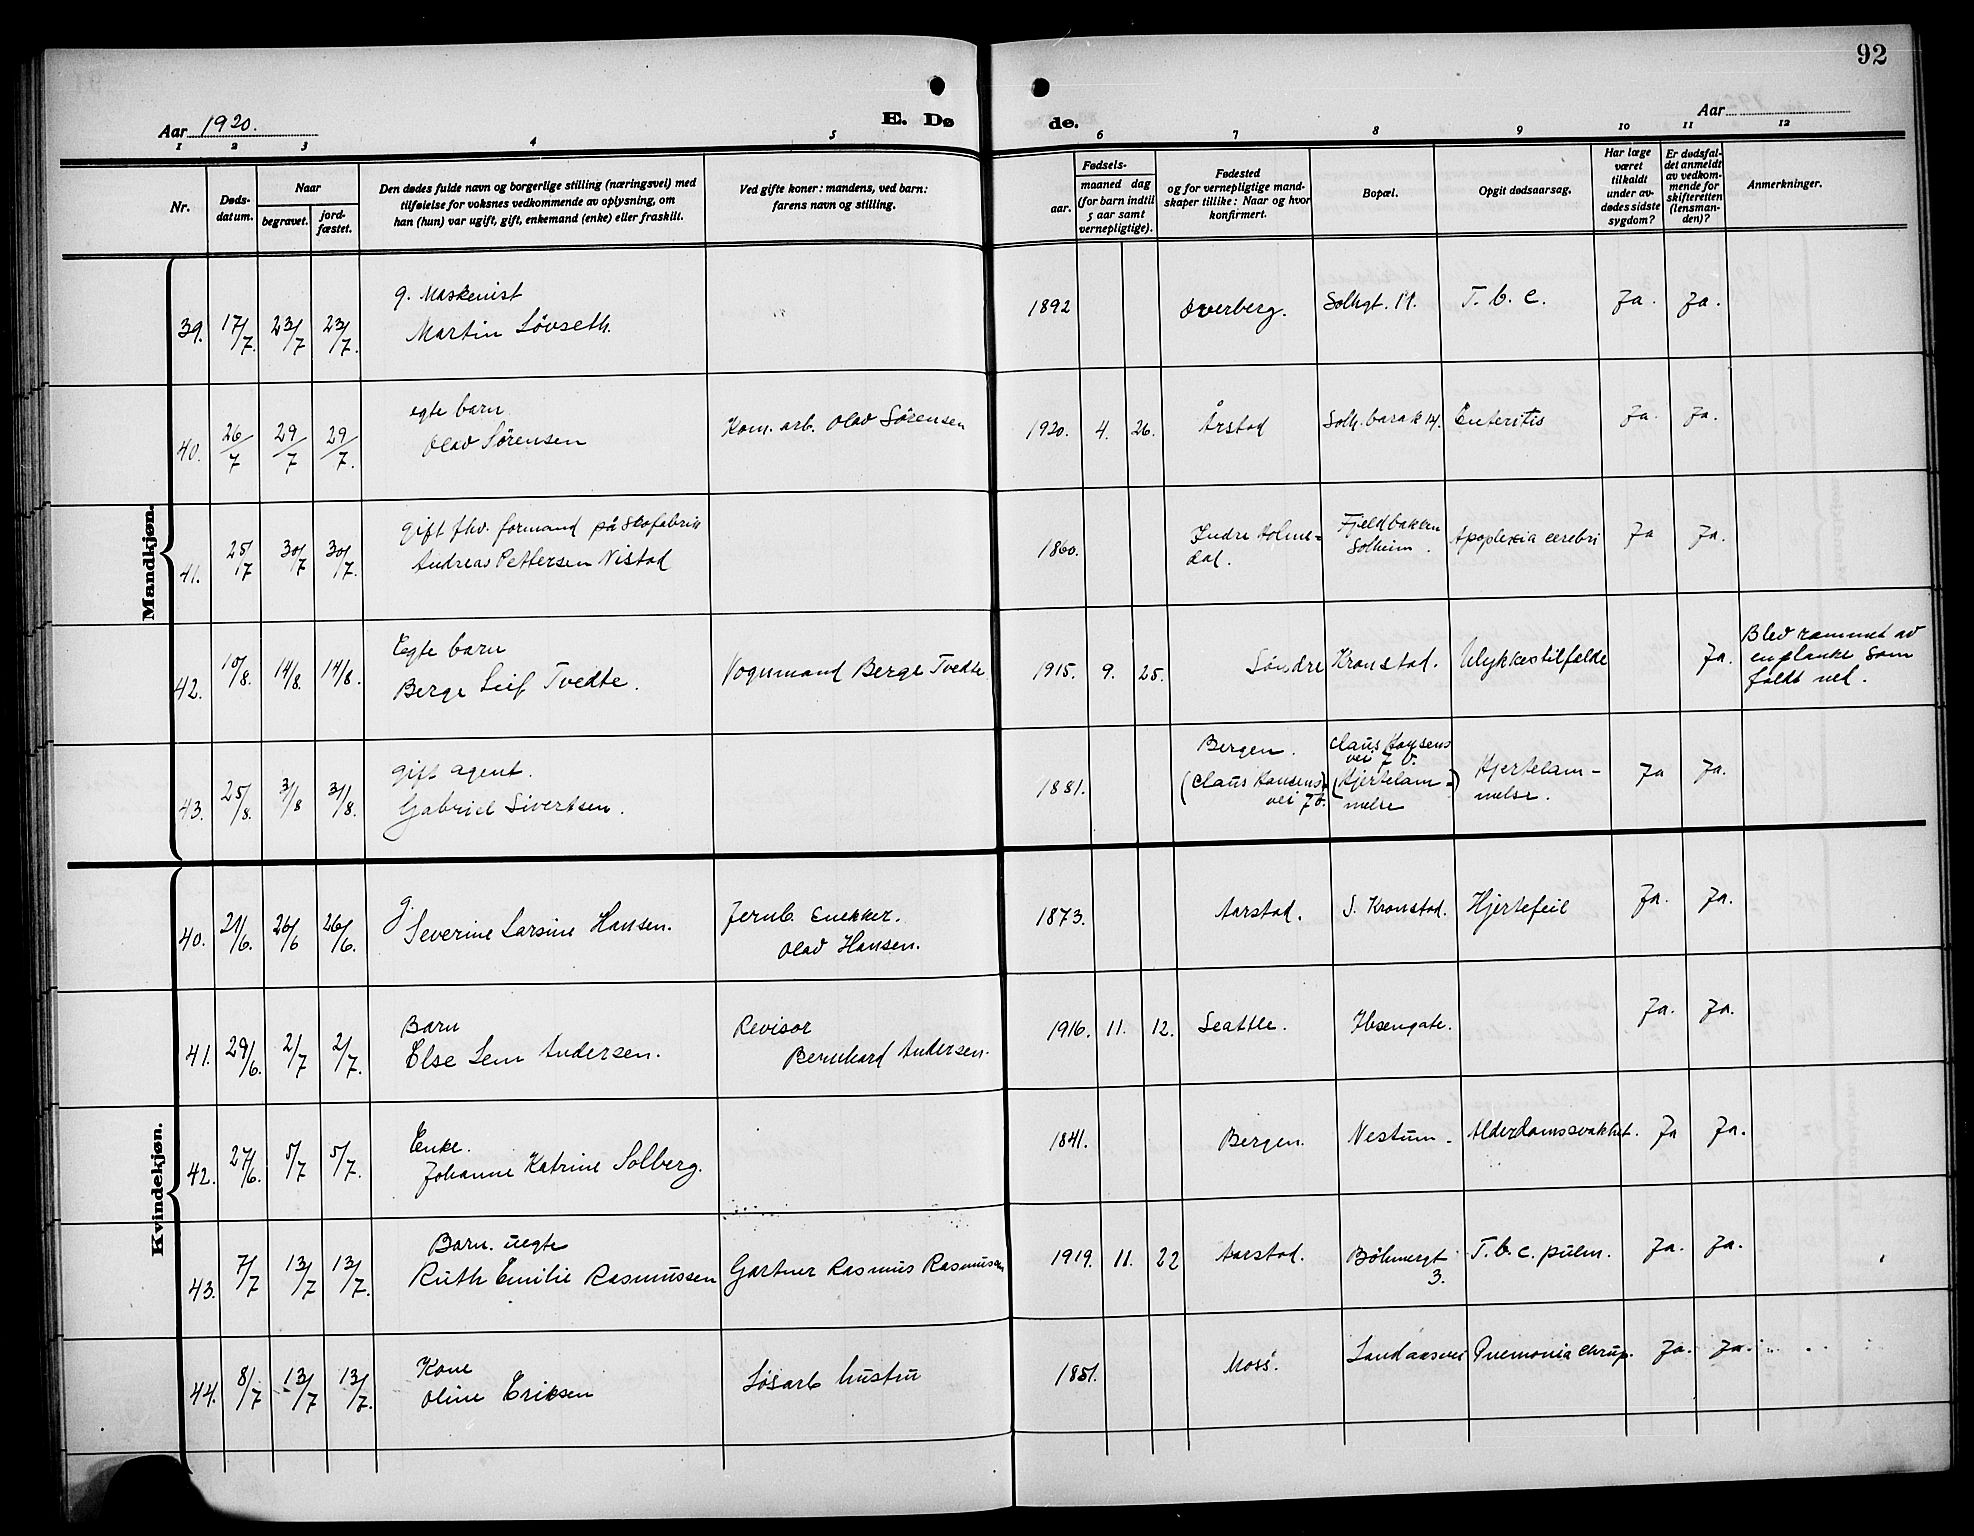 92
Aar 1920.
E. Dø
de.
Aar
1 2 3 4 5 6 7 8 9 10 11 12
Nr.
Døds-
datum.
Naar
begravet.
jord-
fæstet.
Den dødes fulde navn og borgerlige stilling (næringsvei) med
tilføielse for voksnes vedkommende av oplysning, om
han (hun) var ugift, gift, enkemand (enke) eller fraskilt.
Ved gifte koner: mandens, ved barn:
farens navn og stilling.
Fødsels-
aar.
maaned dag
(for barn indtil
5 aar samt
vernepligtige).
Fødested
og for vernepligtige mand-
skaper tillike: Naar og hvor
konfirmert.
Bopæl.
Opgit dødsaarsag.
Har læge
været
tilkaldt
under av-
dødes sidste
sygdom?
Er dødsfal-
det anmeldt
av vedkom-
mende for
skifteretten
(lensman-
den)?
Anmerkninger.
Mandkjøn.
39. 17/7. 23/7 23/7. g. Maskenist
Martin Løvseth. 1892 Sverberg. Solhgt. 11. T. b. c. Ja. Ja.
40. 26/7 29/7 29/7. egte barn
Olav Sørensen Kom. arb. Olav Sørensen 1920. 4. 26. Årstad Solh. barak 14. Enteritis Ja. Ja.
41. 25/7 30/7 30/7. gift fhv. formand på Skofabrik
Andreas Pettersen Nistad 1860. Indre Holme-
dal. Fjeldbakken
Solheim. Apoplexia cerebri Ja Ja.
42. 10/8. 14/8. 14/8. Egte barn
Berge Leif Tvedte. Vognmand Berge Tvedte 1915. 9. 25. Søndre Kronstad. Ulykkestilfælde Ja. Blev rammet av
en planke som
faldt ned.
43. 25/8. 31/8 31/8. gift agent.
Gabriel Sivertsen. 1881. Bergen.
(Claus Hansens
vei 7b. Claus Hansens
vei 7b.
(Hjertelam-
melse) Hjertelam-
melse. Ja Ja.
Kvindekjøn.
40. 21/6. 26/6 26/6. g.
Severine Larsine Hansen. Jernb. snekker.
Olav Hansen. 1873. Aarstad. S. Kronstad. Hjertefeil Ja. Ja.
41. 29/6. 2/7 2/7. Barn
Else Lem Andersen. Revisor
Bernhard Andersen. 1916. 11. 12. Seattle. Ibsengate. Ja. Ja.
42. 27/6. 5/7 5/7. Enke.
Johanne Katrine Solberg. 1841. Bergen. Nestun. Alderdomssvakhet. Ja Ja.
43. 7/7 13/7 13/7. Barn. uegte
Ruth Emilie Rasmussen Gartner Rasmus Rasmussen 1919. 11. 22 Aarstad. Böhmergt
3. T. b. c. pulm. Ja. Ja.
44. 8/7 13/7 13/7. Kone
Oline Eriksen Løsarb hustru 1851. Moss. Landaasvei Pnemonia chrup. Ja. Ja.